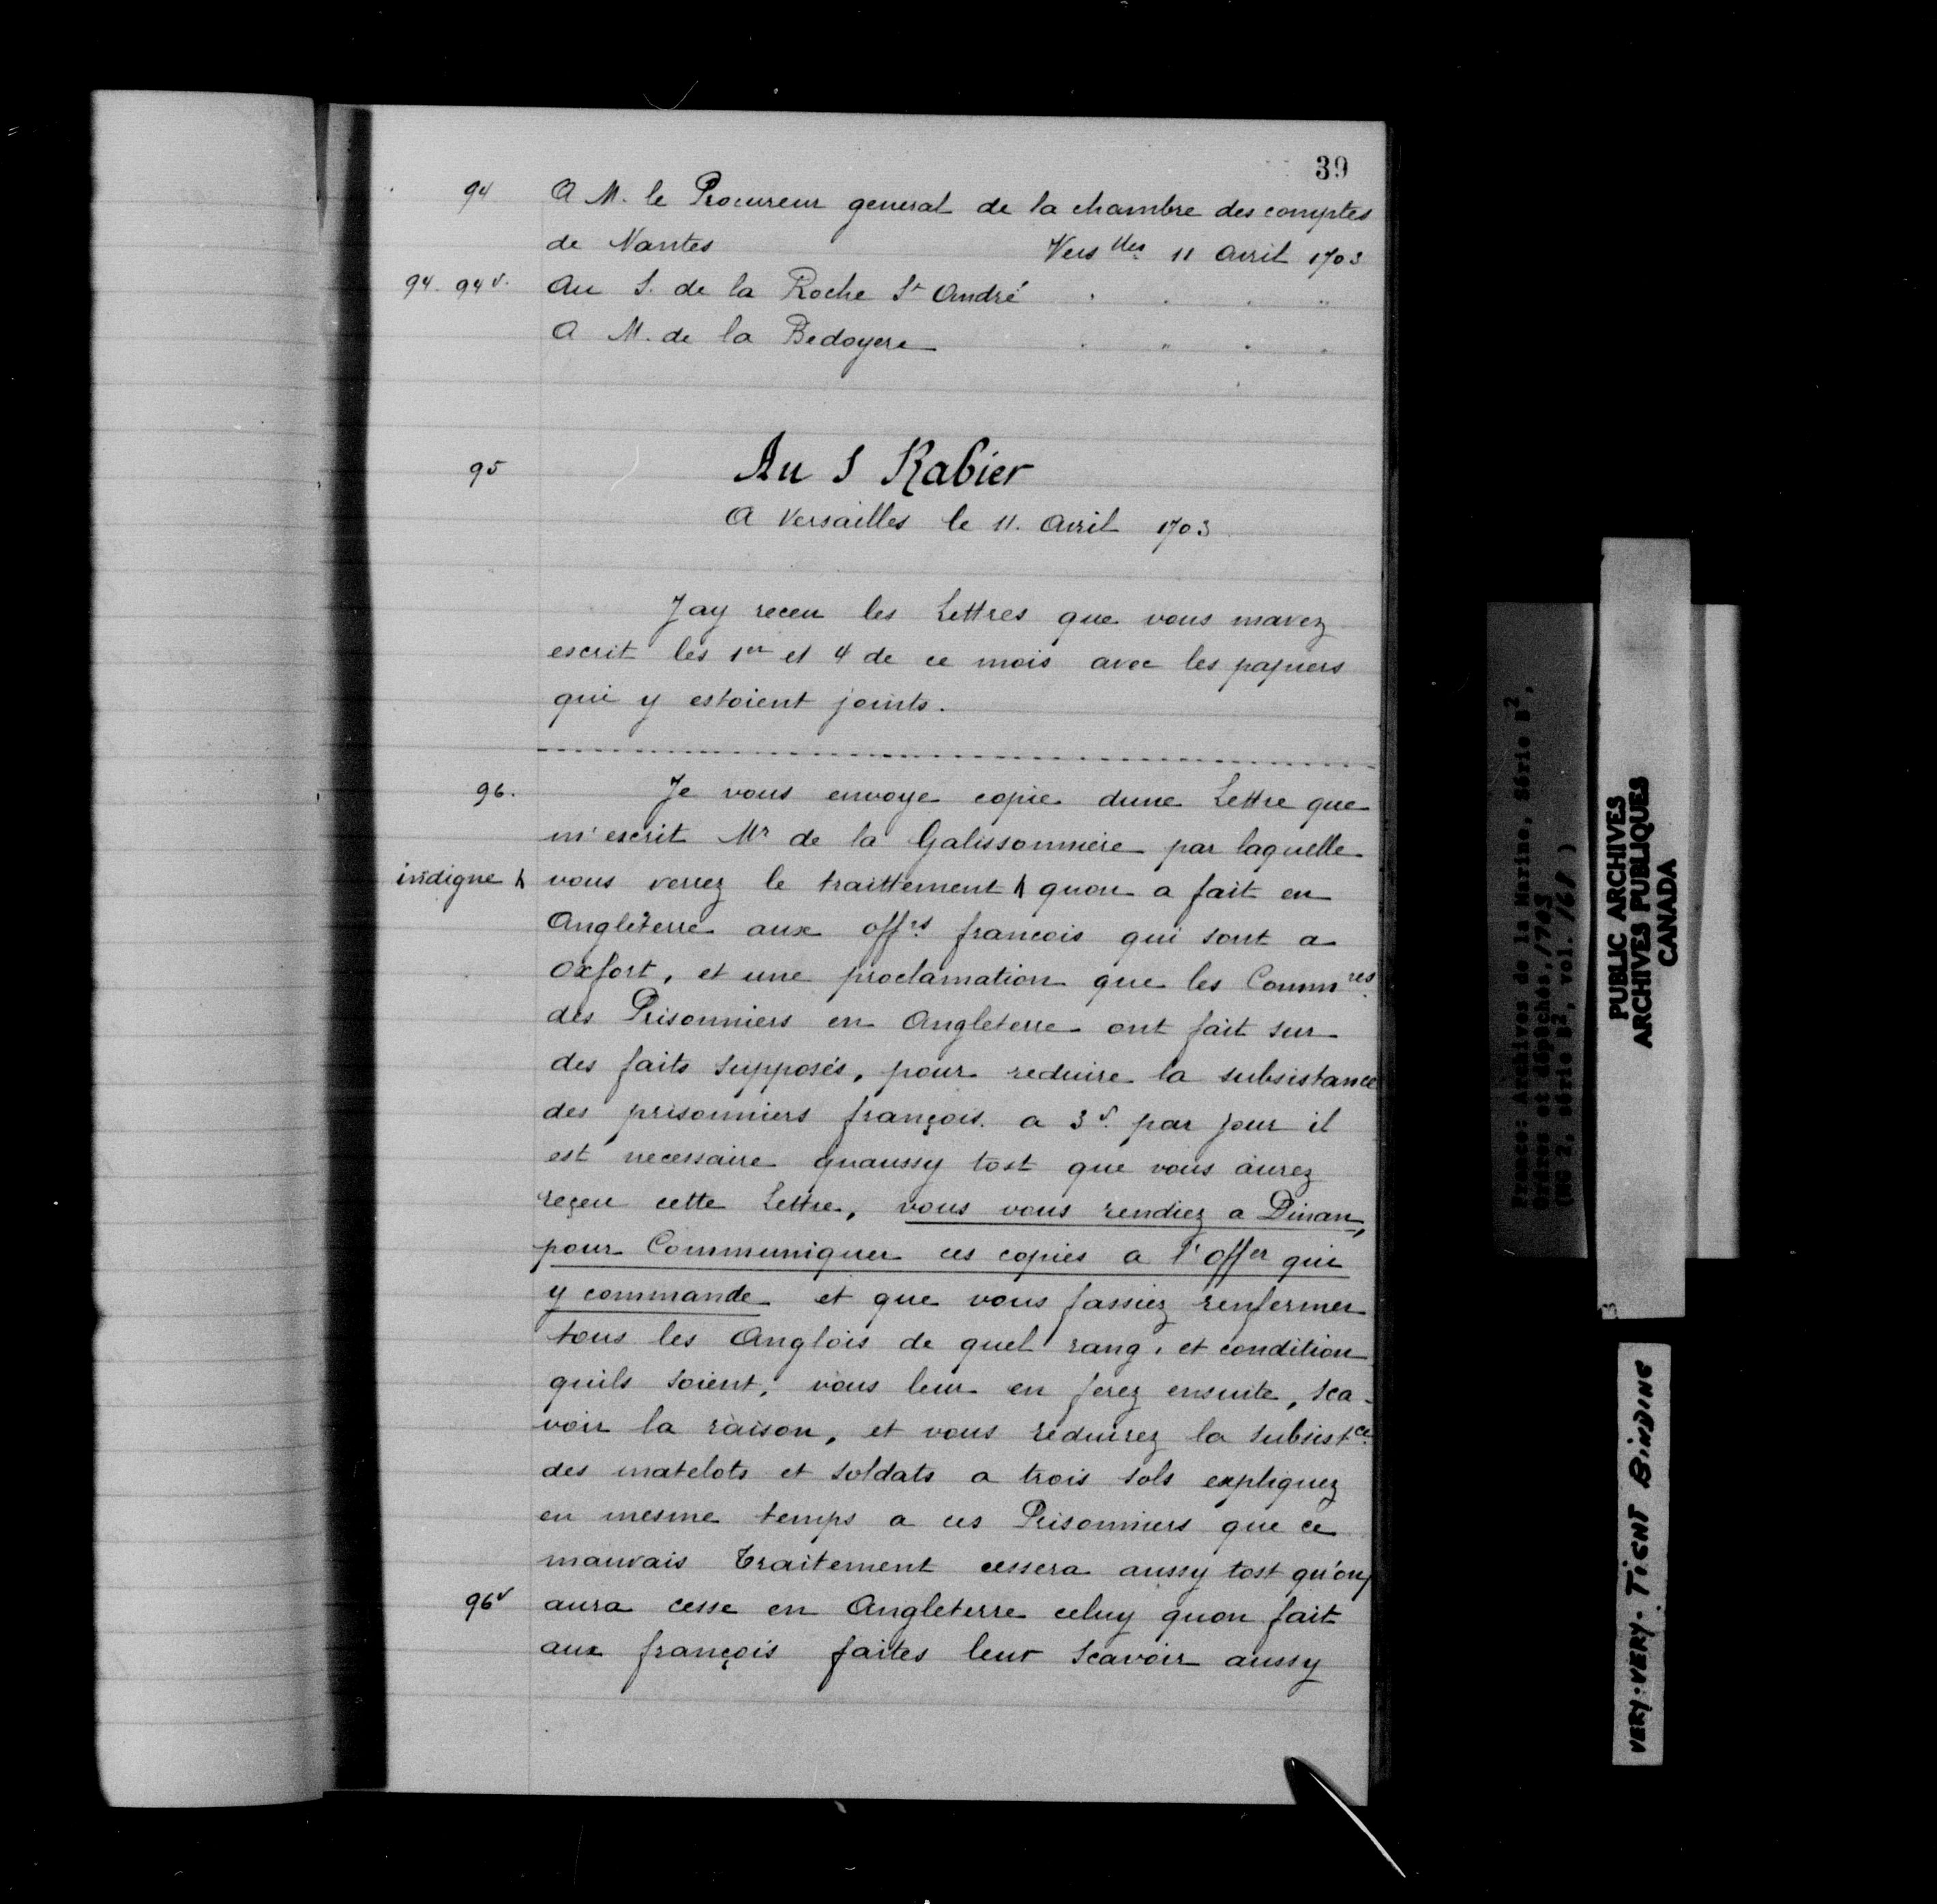 39
94 A M. le Procureur general de la chambre des comptes
de Nantes Vers lles 11 Avril 1703
94. 94v. Au S. de la Roche St André " " " "
A M. de la Bedoyere " " " "
95 Au S Rabier
A Versailles le 11. Avril 1703
Jay receu les Lettres que vous mavez
escrit les 1er et 4 de ce mois avec les papiers
qui y estoient joints.
96. Je vous envoye copie dune Lettre que
m'escrit Mr de la Galissonniere par laquelle
indigne vous verrez le traittement quon a fait en
Angleterre aux offrs francois qui sont a
Oxfort, et une proclamation que les Commres
des Prisonniers en Angleterre ont fait sur
des faits supposés, pour reduire la subsistance
des prisonniers françois. a 3s. par jour il
est necessaire quaussy tost que vous aurez
reçeu cette Lettre, vous vous rendiez a Dinan,
pour Communiquer ces copies a l'offer qui
y commande et que vous fassiez renfermer
tous les Anglois de quel rang, et condition
quils soient, vous leur en ferez ensuite, sca-
voir la raison, et vous reduirez la subsistce
des matelots et soldats a trois sols expliquez
en mesme temps a ces Prisonniers que ce
mauvais traitement cessera aussy tost qu'on
96v aura cesse en Angleterre celuy quon fait
aux françois faites leur scavoir aussy
France: Archives de la Marine, Série B2,
Ordres et dépêches, 1703
(MG 2, série B2, vol. 168)
PUBLIC ARCHIVES
ARCHIVES PUBLIQUES
CANADA
3
VERY. VERY. TIGHT BINDING